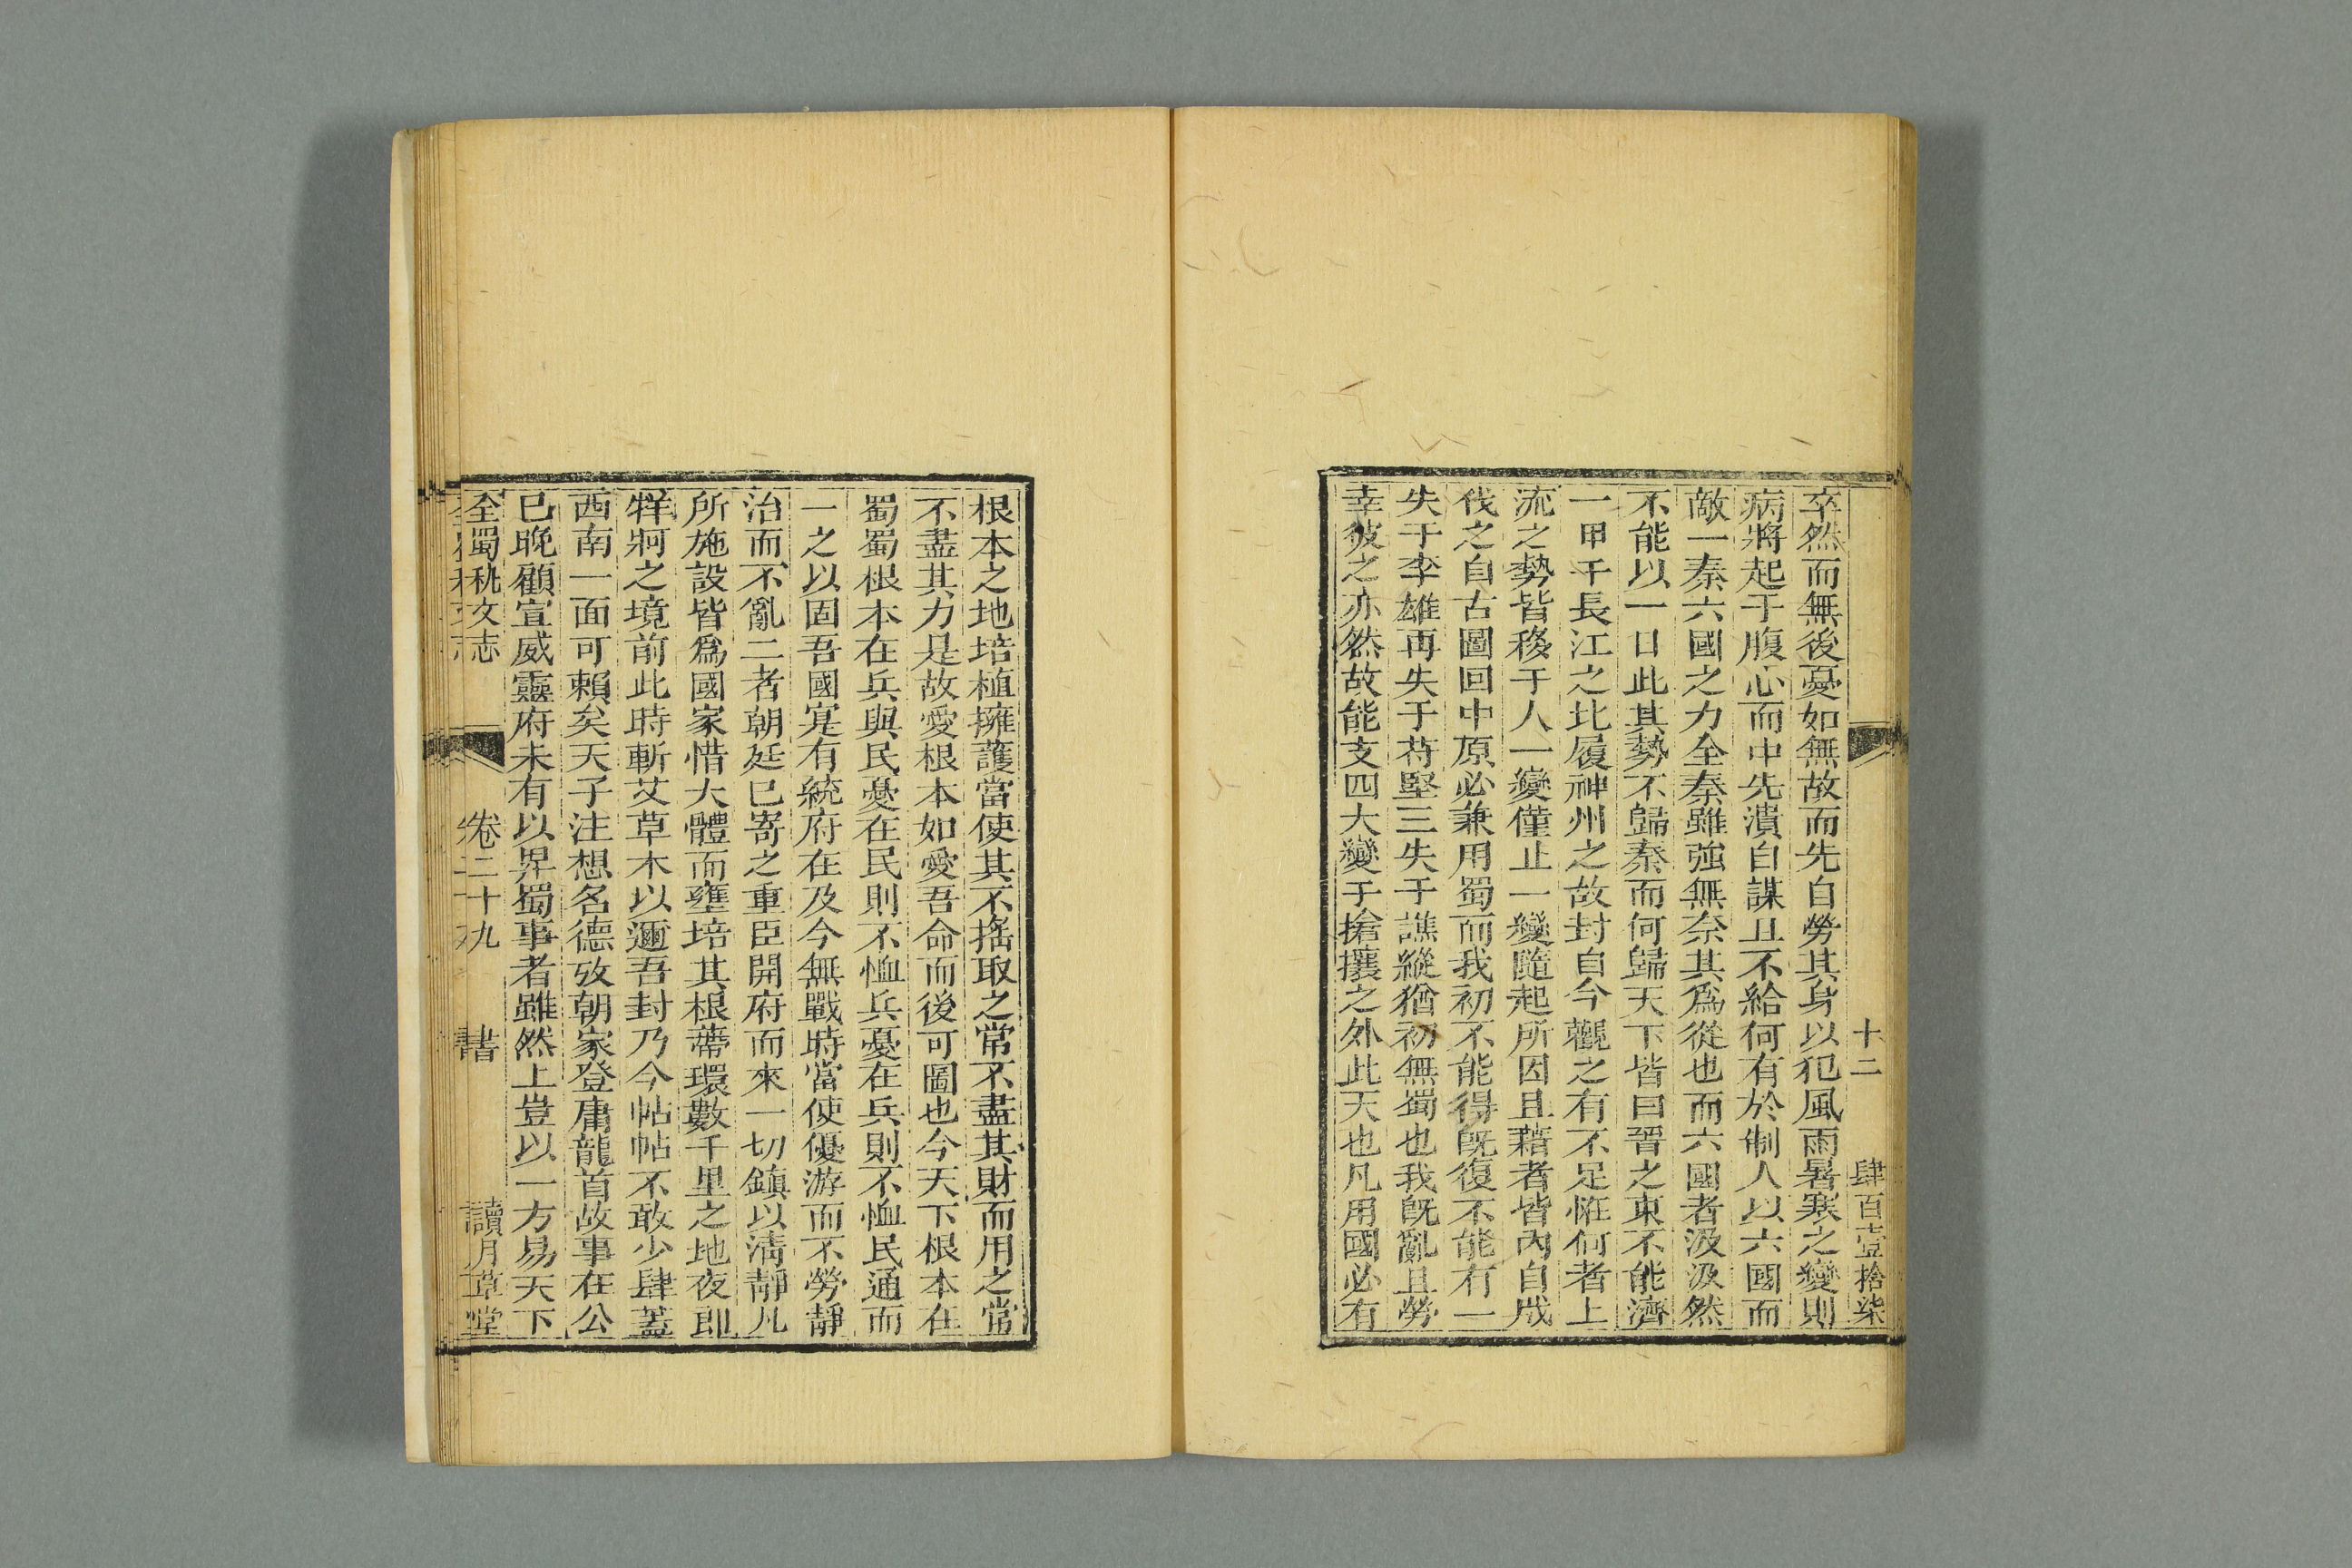 十二 肆百壹拾柒
卒然而無後憂如無故而先自勞其身以犯風雨暑寒之變則
病將起于腹心而中先潰自謀且不給何有於制人以六國而
敵一秦六國之力全秦雖強無奈其爲從也而六國者汲汲然
不能以一日此其勢不歸秦而何歸天下皆曰晉之東不能濟
一甲于長江之北履神州之故封自今觀之有不足恠何者上
流之勢皆移于人一變僅止一變隨起所因且藉者皆內自成
伐之自古圖回中原必兼用蜀而我初不能得旣復不能有一
失于李雄再失于苻堅三失于譙縱猶初無蜀也我旣亂且勞
幸彼之亦然故能支四大變于搶攘之外此天也凡用國必有
根本之地培植擁護當使其不搖取之常不盡其財而用之常
不盡其力是故愛根本如愛吾命而後可圖也今天下根本在
蜀蜀根本在兵與民憂在民則不恤兵憂在兵則不恤民通而
一之以固吾國寔有統府在及今無戰時當使優游而不勞靜
治而不亂二者朝廷已寄之重臣開府而來一切鎮以清靜凡
所施設皆爲國家惜大體而壅培其根蔕環數千里之地夜郎
牂牁之境前此時斬艾草木以邇吾封乃今帖帖不敢少肆蓋
西南一面可賴矣天子注想名德攷朝家登庸龍首故事在公
已晚顧宣威靈府未有以畀蜀事者雖然上豈以一方易天下
全蜀秇文志 卷二十九 書 讀月草堂